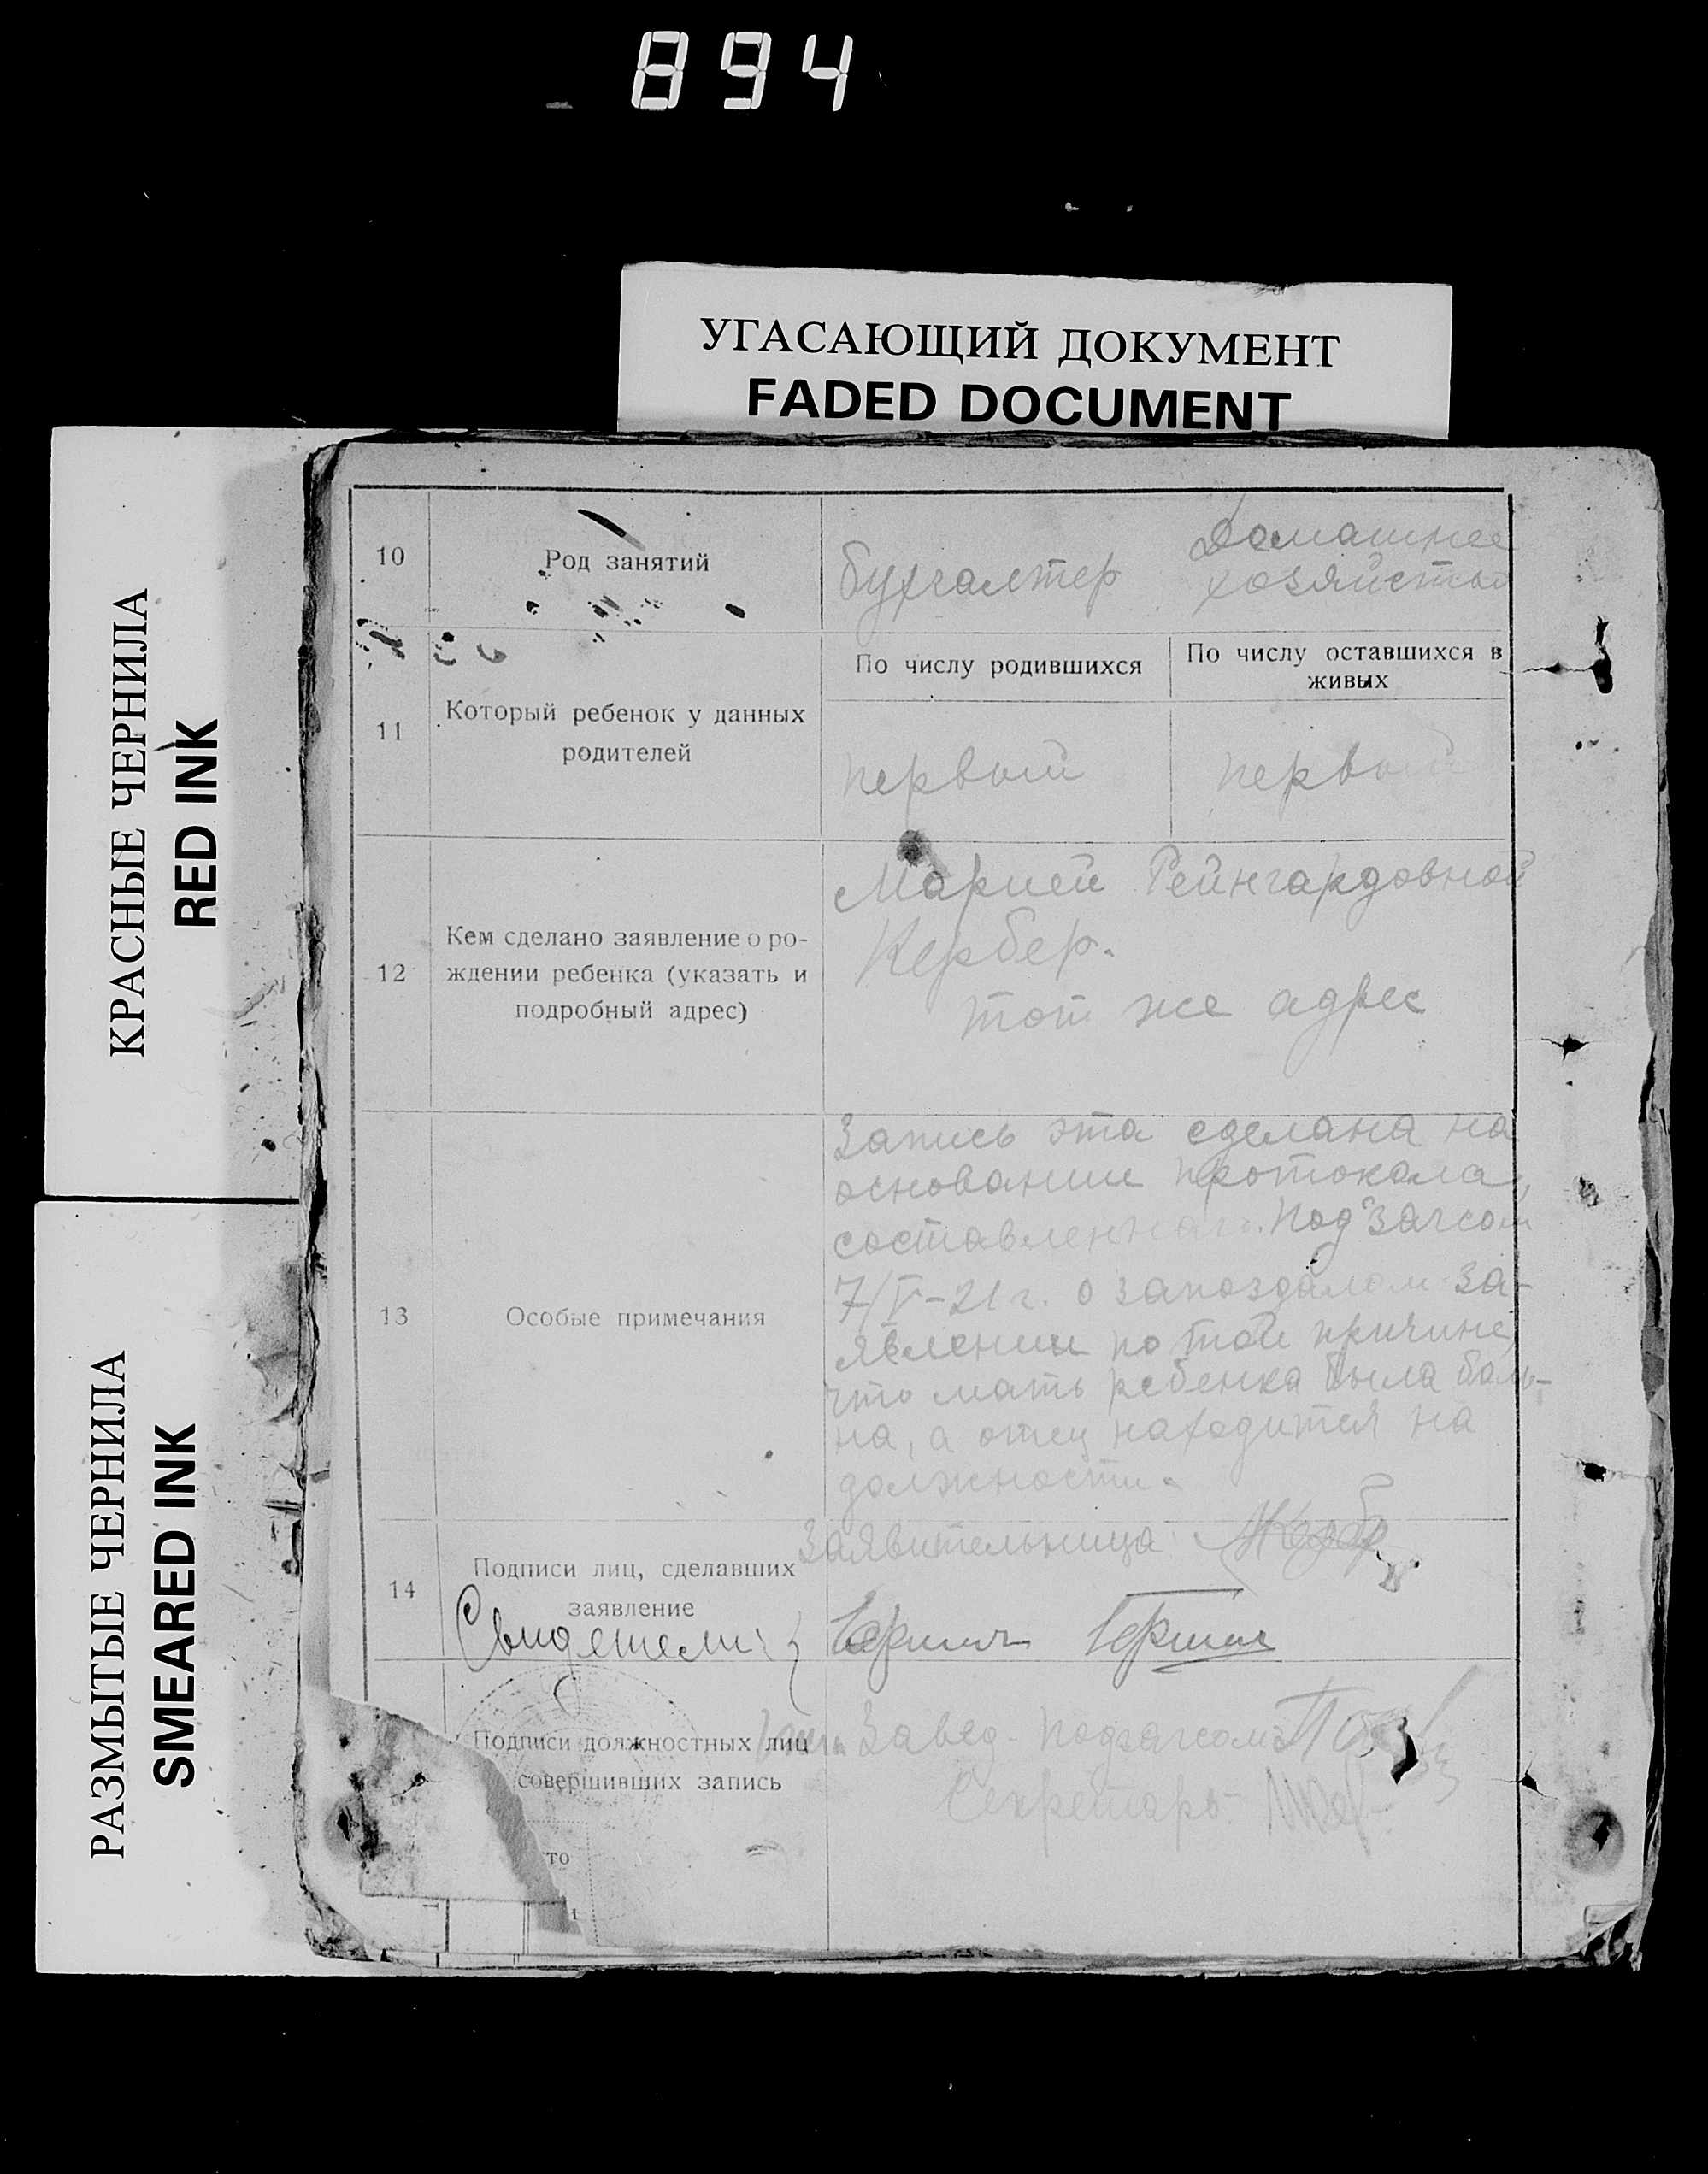 894
УГАСАЮЩИЙ ДОКУМЕНТ
FADED DOCUMENT
КРАСНЫЕ ЧЕРНИЛА
RED INK
РАЗМЫТЫЕ ЧЕРНИЛА
SMEARED INK
10
Род занятий
бухгалтер
Домашнее
хозяйство
11
Который ребенок у данных
родителей
По числу родившихся
По числу оставшихся в
живых
первый
первый
12
Кем сделано заявление о ро-
ждении ребенка (указать и
подробный адрес)
Марией Рейнгардовной
Кербер.
тот же адрес
13
Особые примечания
Запись эта сделана на
основании протокола,
составленнаго Подзагсом
7/V-21 г. о запоздалом за-
явлении по той причине,
что мать ребенка была боль-
на, а отец находится на
должности.
14
Подписи лиц, сделавших
заявление
Заявительница
Свидетели:
Подписи должностных лиц
совершивших запись
Завед. подзагсом
Секретарь
то